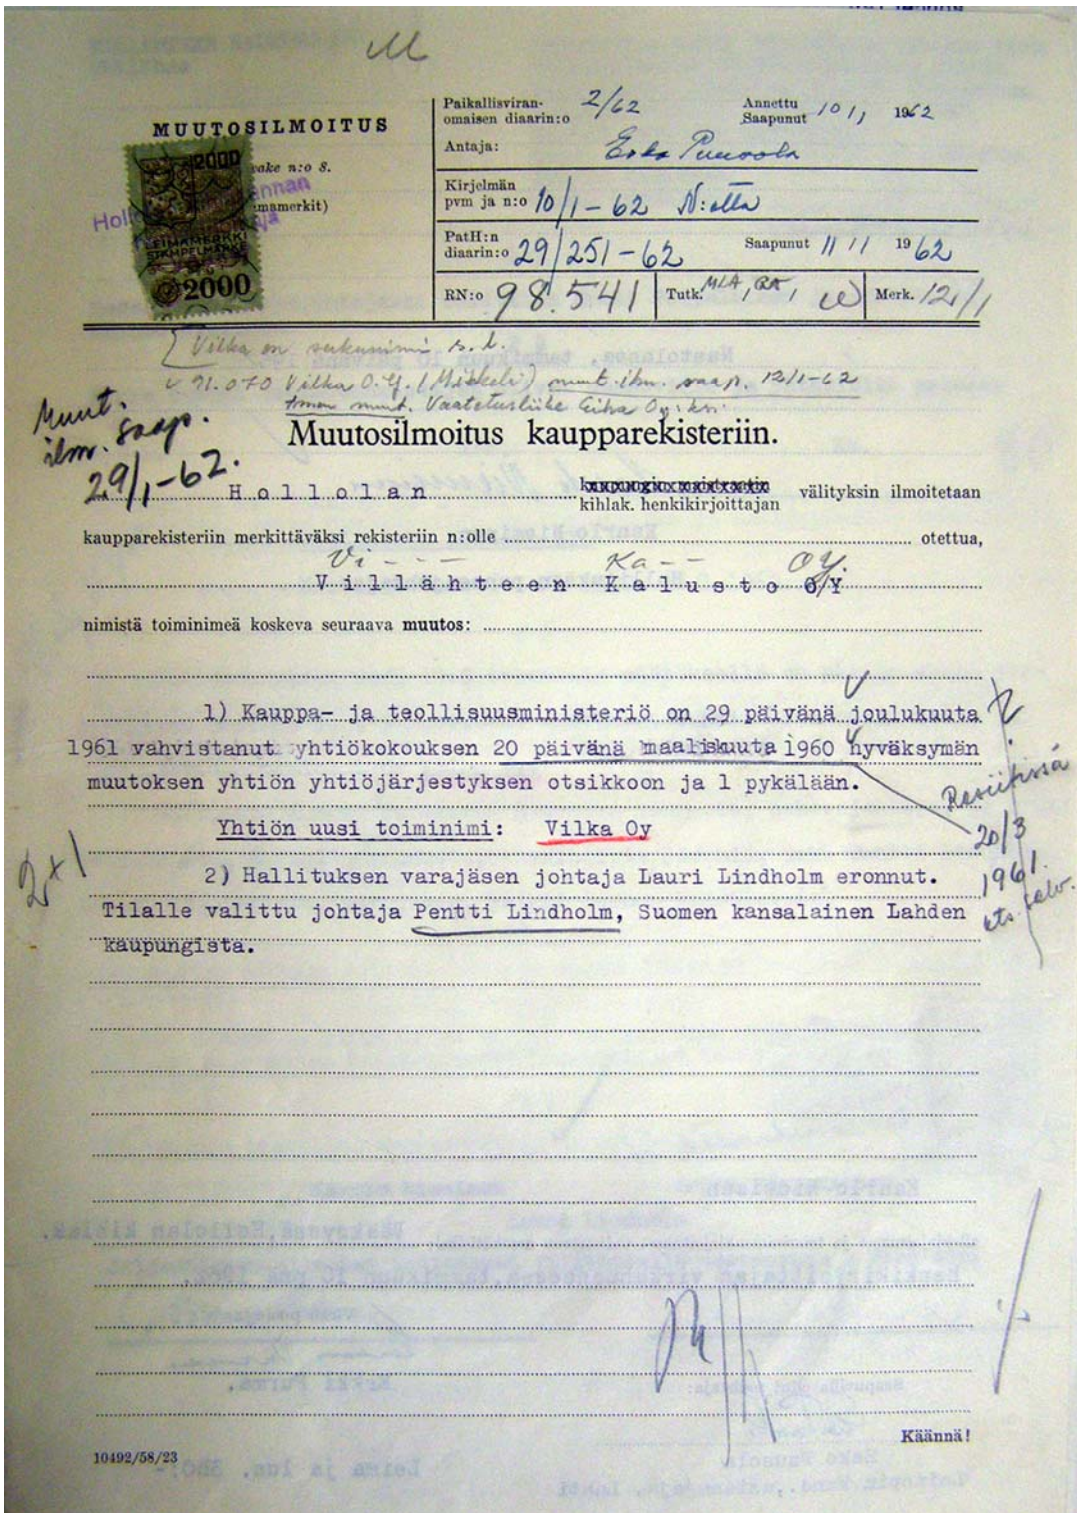 M
MUUTOSILMOITUS
Paikallisviran-
omaisen diaarin:o 2/62
Annettu
Saapunut 10/1 1962
Antaja: Esko Puusola
ake n:o 8.
imamerkit)
2000
LEIMAMERKKI
STÄMPELMÄRKE
2000
Kirjelmän
pvm ja n:o 10/1-62 N:otta
PatH:n
diaarin:o 29/251-62 Saapunut 11/1 1962
RN:o 98.541 Tutk. MLA, Merk. 12/1
Vilka on sukunimi
91.070 Vilka O.Y. (Mikkeli) muut.ilm. saap. 12/1-62
muut. Vaatetusliike Oy:ksi
Muut.
ilm. saap.
29/1-62.
Muutosilmoitus kaupparekisteriin.
Hollolan kaupungin maistraatin
kihlak. henkikirjoittajan välityksin ilmoitetaan
kaupparekisteriin merkittäväksi rekisteriin n:olle otettua,
Vi - - - Ka - - OY.
Villähteen Kalusto O/Y
nimistä toiminimeä koskeva seuraava muutos:
1) Kauppa- ja teollisuusministeriö on 29 päivänä joulukuuta
1961 vahvistanut yhtiökokouksen 20 päivänä maaliskuuta 1960 hyväksymän
muutoksen yhtiön yhtiöjärjestyksen otsikkoon ja 1 pykälään.
20/3
1961.
Yhtiön uusi toiminimi: Vilka Oy
2) Hallituksen varajäsen johtaja Lauri Lindholm eronnut.
Tilalle valittu johtaja Pentti Lindholm, Suomen kansalainen Lahden
kaupungista.
2+1
Käännä!
10492/58/23